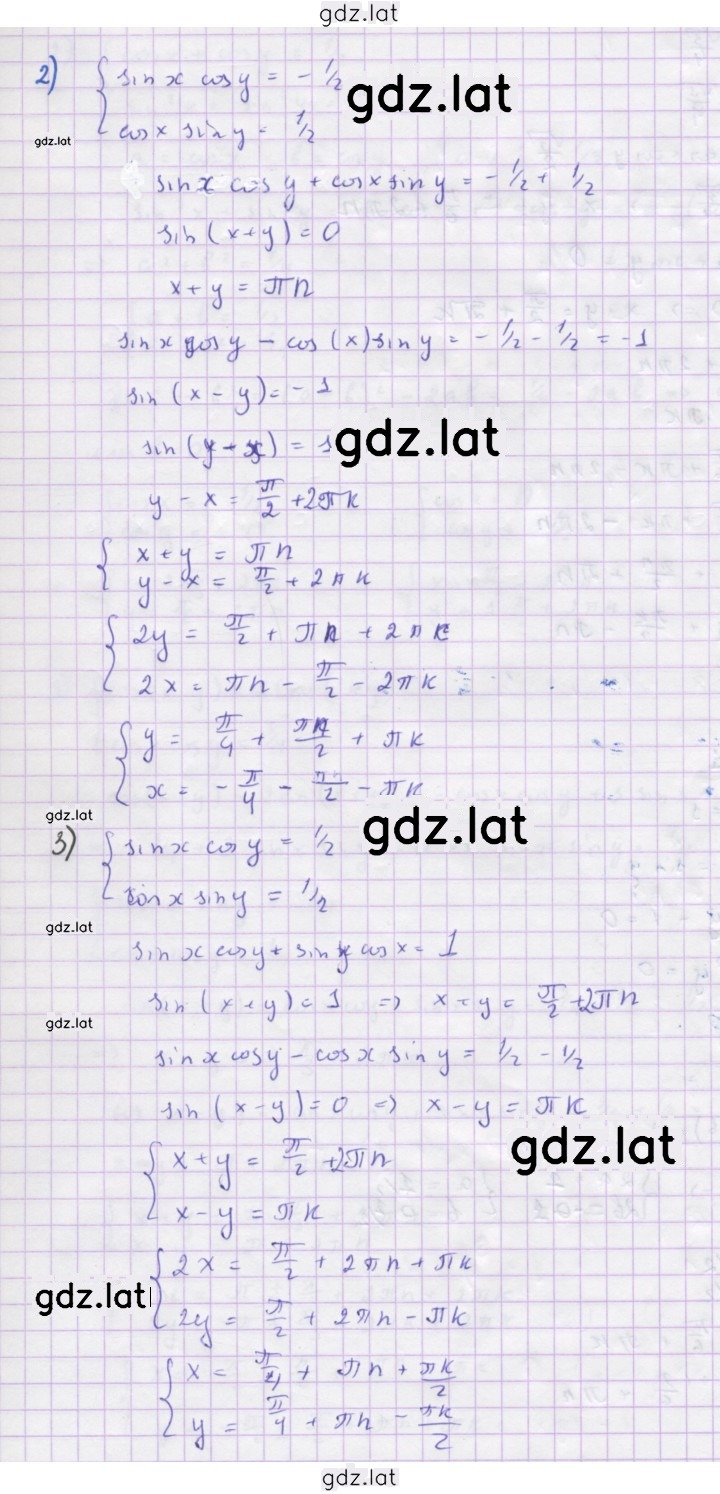 gdz.lat
2) { sin x cos y = - 1/2
gdz.lat
cos x sin y = 1/2
gdz.lat
sin x cos y + cos x sin y = - 1/2 + 1/2
sin (x+y) = 0
x + y = πn
sin x cos y - cos (x) sin y = - 1/2 - 1/2 = -1
sin (x - y) = - 1
sin (y - x) = 1
gdz.lat
y - x = π/2 + 2πk
{ x + y = πn
y - x = π/2 + 2πk
{ 2y = π/2 + πn + 2πk
2x = πn - π/2 - 2πk
{ y = π/4 + πn/2 + πk
x = - π/4 - πn/2 - πk
gdz.lat
gdz.lat
3) { sin x cos y = 1/2
cos x sin y = 1/2
gdz.lat
sin x cos y + sin y cos x = 1
sin (x + y) = 1 => x + y = π/2 + 2πn
gdz.lat
sin x cos y - cos x sin y = 1/2 - 1/2
sin (x-y) = 0 => x - y = πk
gdz.lat
{ x + y = π/2 + 2πn
x - y = πk
{ 2x = π/2 + 2πn + πk
gdz.lat
2y = π/2 + 2πn - πk
{ x = π/4 + πn + πk/2
y = π/4 + πn - πk/2
gdz.lat